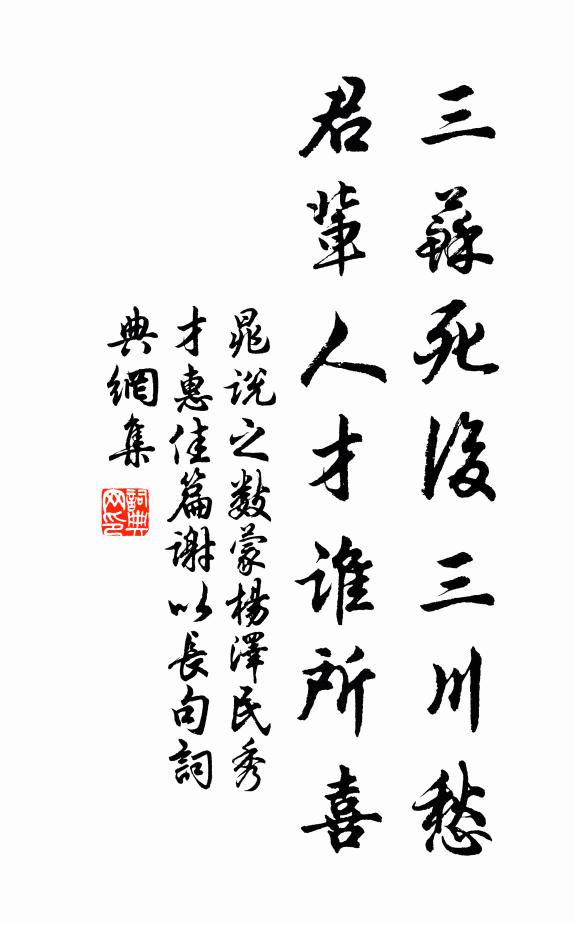 三蘇死後三川愁
君輩人才誰所喜
晁說之數蒙楊澤民秀
才惠佳篇謝以長句詞
典網集
詞典網印